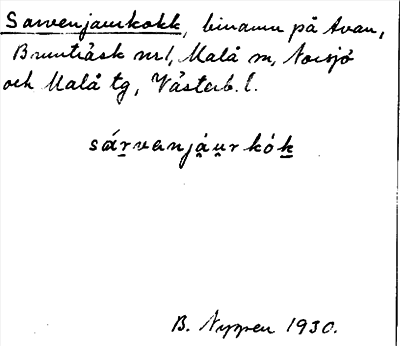 Sarvenjaurkokk, binamn på Avan,
Brunträsk nr1, Malå sn, Norsjö
och Malå tg, Västerb. l.
sárvenjáurkók
B. Nyppen 1930.